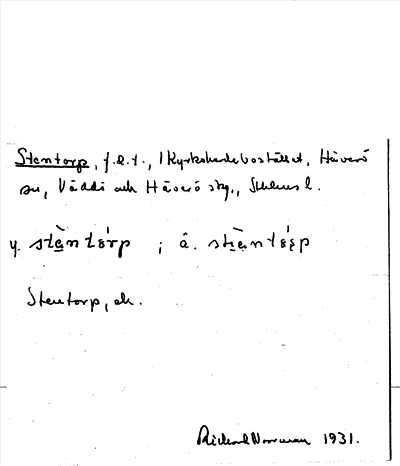 Stentorp, f.l.t., 1 Kyrkoherdebostället, Häverö
sn, Väddö och Häverö skg., Sthlms l.
y. stàntórp ; ä.
Stentorp, ek.
Richard Norrman 1931.